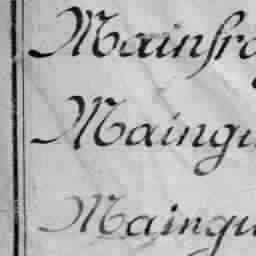 Mainfro
Maingu
Maingu